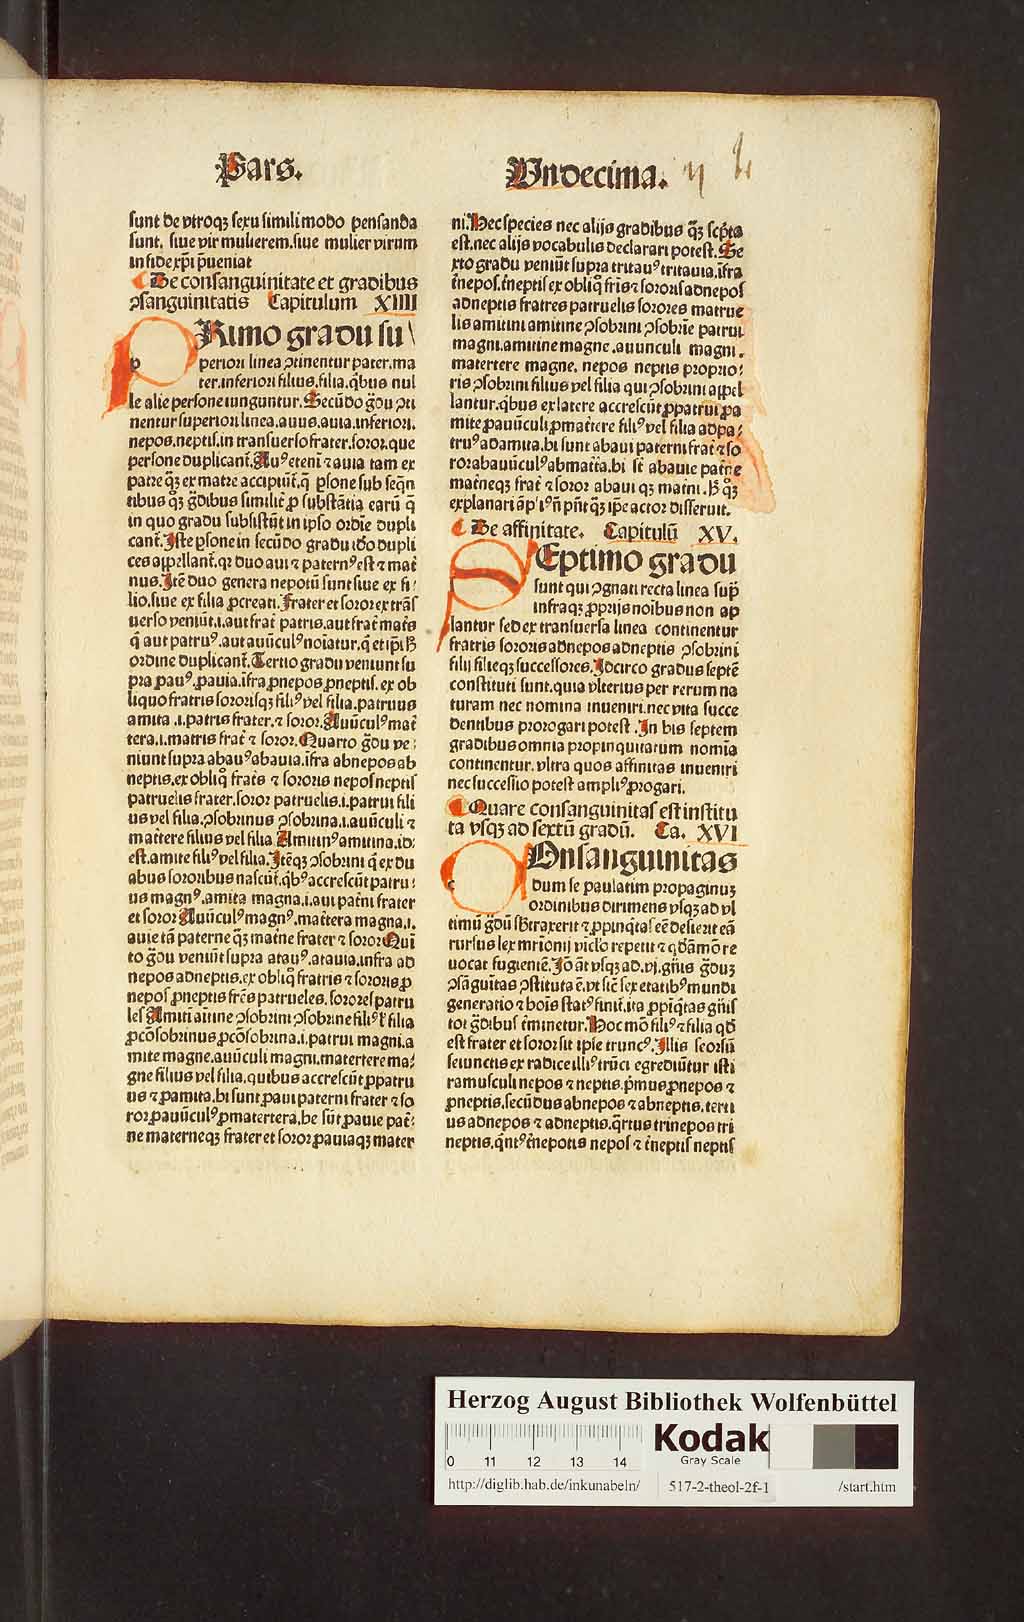 Pars.
Undecima.
sunt de vtroqꝫ sexu simili modo pensanda
sunt, siue vir mulierem.siue mulier virum
in fide xp̄i p̄ueniat
De consanguinitate et gradibus
ꝯsanguinitatis Capitulum XIIII
PRimo gradu su
periori linea ꝯtinentur pater.ma
ter.inferiori filius.filia.q̄bus nul
le alie persone iunguntur.Secūdo g̈du ꝯti
nentur superiori linea.auus.auia.inferiori.
nepos.neptis.in transuerso frater.soror.que
persone duplicant̄.Auꝰ eteni ̄ ⁊ auia tam ex
patre qꝫ ex matre accipiunt̄.q̄ ꝑsone sub seq̄n
tibus qꝫ g̈dibus similit̄ ꝑ substātia earū q̄
in quo gradu subsistūt in ipso ordīe dupli
cant̄.Iste ꝑsone in secūdo gradu iđo dupli
ces appellant̄.qꝛ duo aui ⁊ paternꝰ est ⁊ mat̄
nus.Itē duo genera nepotū sunt siue ex fi
lio.siue ex filia ꝓcreati.Frater et soror ex trās
uerso veniūt.i.aut frat̄ patris.aut frat̄ mat̄s
q̄ aut patruꝰ.aut auūculꝰ noīatur.q̄ et ip̄i ꝭ
ordine duplicant̄.Tertio gradu veniunt su
pra ꝓauꝰ.ꝓauia.īfra ꝓnepos ꝓneptis. ex ob
liquo fratris sororisqꝫ filiꝰ vel filia.patruus
amita .i.patris frater.⁊ soror.Auūculꝰ mat̄
tera.i.matris frat̄ ⁊ soror.Quarto g̈du ve
niunt supra abauꝰ abauia.īfra abnepos ab
neptis.ex obliq̄ frat̄s ⁊ sororis nepos neptis
patruelis frater.soror patruelis.i.patrui fili
us vel filia.ꝯsobrinus ꝯsobrina.i.auūculi ⁊
mat̄tere filius vel filia Amitinꝰ amitina.id
est.amite filiꝰ vel filia.Itēqꝫ ꝯsobrini q̄ ex du
abus sororibus nascūt̄.q̄bꝰ accrescūt patru
us magnꝰ.amita magna.i.aui pat̄ni frater
et soror Auūculꝰ magnꝰ.mat̄tera magna.i.
auie tā paterne qꝫ mat̄ne frater ⁊ soror.Quī
to g̈du veniūt supra atauꝰ.atauia.infra ad
nepos adneptis.ex obliq̄ fratris ⁊ sororis ꝓ
nepos ꝓneptis fr̄es patrueles.sorores patru
les Amiti aitine ꝯsobrini ꝯsobrine filiꝰ ł filia
ꝓcōsobrinus ꝓcōsobrina.i.patrui magni.a
mite magne.auūculi magni.matertere ma
gne filius vel filia.quibus accrescūt ꝓpatru
us ⁊ ꝓamita.hi sunt ꝓaui paterni frater ⁊ so
ror ꝓauūculꝰ ꝓmatertera.he sūt ꝓauie pat̄
ne materneqꝫ frater et soror ꝓauiaqꝫ mater
ni.Hec species nec alijs gradibus qꝫ sc̄pta
est.nec alijs vocabulis declarari potest.Se
xto gradu veniūt supra tritauꝰ tritauia.īfra
t̄nepos.t̄neptis ex obliq̄ fr̄is ⁊ sororis adnepos
adneptis fratres patruelis sorores matrue
lis amitini amitine ꝯsobrini ꝯsobrīe patrui
magni.amitine magne .auunculi magni.
matertere magne. nepos neptis proprio
ris ꝯsobrini filius vel filia qui ꝯsobrini appel
lantur.q̄bus ex latere accrescūt ꝓpatrui ꝓa
mite ꝓauūculi ꝓmat̄tere filiꝰ vel filia adpa
truꝰ adamita.hi sunt abaui paterni frat̄ ⁊ so
ror abauūculꝰ abmat̄ta.hi st̄ abauie pat̄ne
mat̄neqꝫ frat̄ ⁊ soror abaui qꝫ mat̄ni.
explanari qꝫ ip̄e actor disseruit.
De affinitate. Capitulū XV.
SEptimo gradu
sunt qui ꝯgnati recta linea sup̄
infraqꝫ ꝓprijs noībus non ap
lantur sed ex transuersa linea continentur
fratris sororis adnepos adneptis ꝯsobrini
filij filieqꝫ successores.Idcirco gradus septē
constituti sunt.quia vlterius per rerum na
turam nec nomina inueniri.nec vita succe
dentibus prorogari potest .In his septem
gradibus omnia propinquitatum nomīa
continentur.vltra quos affinitas inueniri
nec successio potest ampliꝰ ꝓrogari.
Quare consanguinitas est institu
ta vsqꝫ ad sextū gradū. Ca. XVI
COnsanguinitas
dum se paulatim propaginuꝫ
ordinibus dirimens vsqꝫ ad vl
timū g̈dū sb̄traxerit ⁊ ꝓpinq̄tas eē desierit eā
rursus lex mr̄ionij viclo repetit ⁊ qđāmō re
uocat fugientē.Iō āt vsqꝫ ad.vj.gn̄is g̈duꝫ
ꝯsāguītas ꝯstituta ē.vt sic̄ sex etatibꝰ mundi
generatio ⁊ hoīs statꝰ finit̄.ita ꝓpīq̄tas gn̄is
tot g̈dibus t̄minetur.Hoc mō filiꝰ ⁊ filia qđ
est frater et soror sit ipse truncꝰ.Illis seorsū
seiunctis ex radice illiꝰ trūci egrediūtur isti
ramusculi nepos ⁊ neptis.p̄mus ꝓnepos ⁊
ꝓneptis.secūdus abnepos ⁊ abneptis.terti
us adnepos ⁊ adneptis.q̄rtus trinepos tri
neptis.q̄ntꝰ t̄nepotis nepos ⁊ t̄neptis neptis
Herzog August Bibliothek Wolfenbüttel
0 11 12 13 14
Kodak
Gray Scale
http://diglib.hab.de/inkunabeln/ 517-2-theol-2f-1 /start.htm